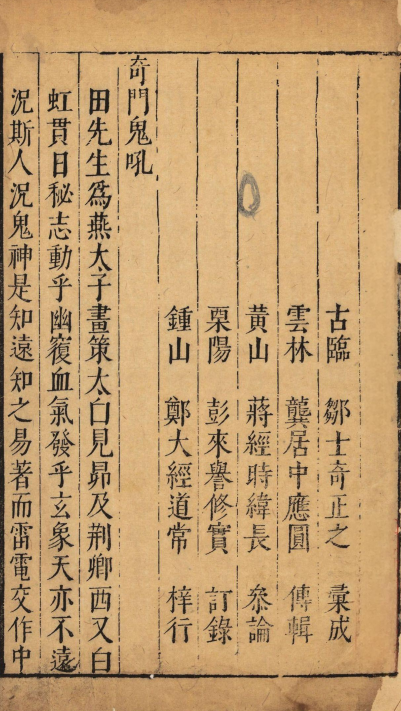 古臨　鄒士奇正之　彙成
雲林　龔居中應圓　傳輯
黃山　蔣經時緯長　叅論
栗陽　彭來譽修實　訂錄
鍾山　鄭大經道常　梓行
奇門鬼吼
田先生爲燕太子畫策太白見昴及荆卿西又白
虹貫日秘志動乎幽窽血氣發乎玄象天亦不遠
況斯人況鬼神是知遠知之易著而雷電交作中